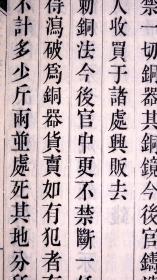 禁一切銅器其銅鏡今後官鑄
人收買于諸處興販去
剏銅法今後官中更不禁斷一
得瀉破爲銅器貨賣如有犯者有
不計多少斤兩並處死其地分所